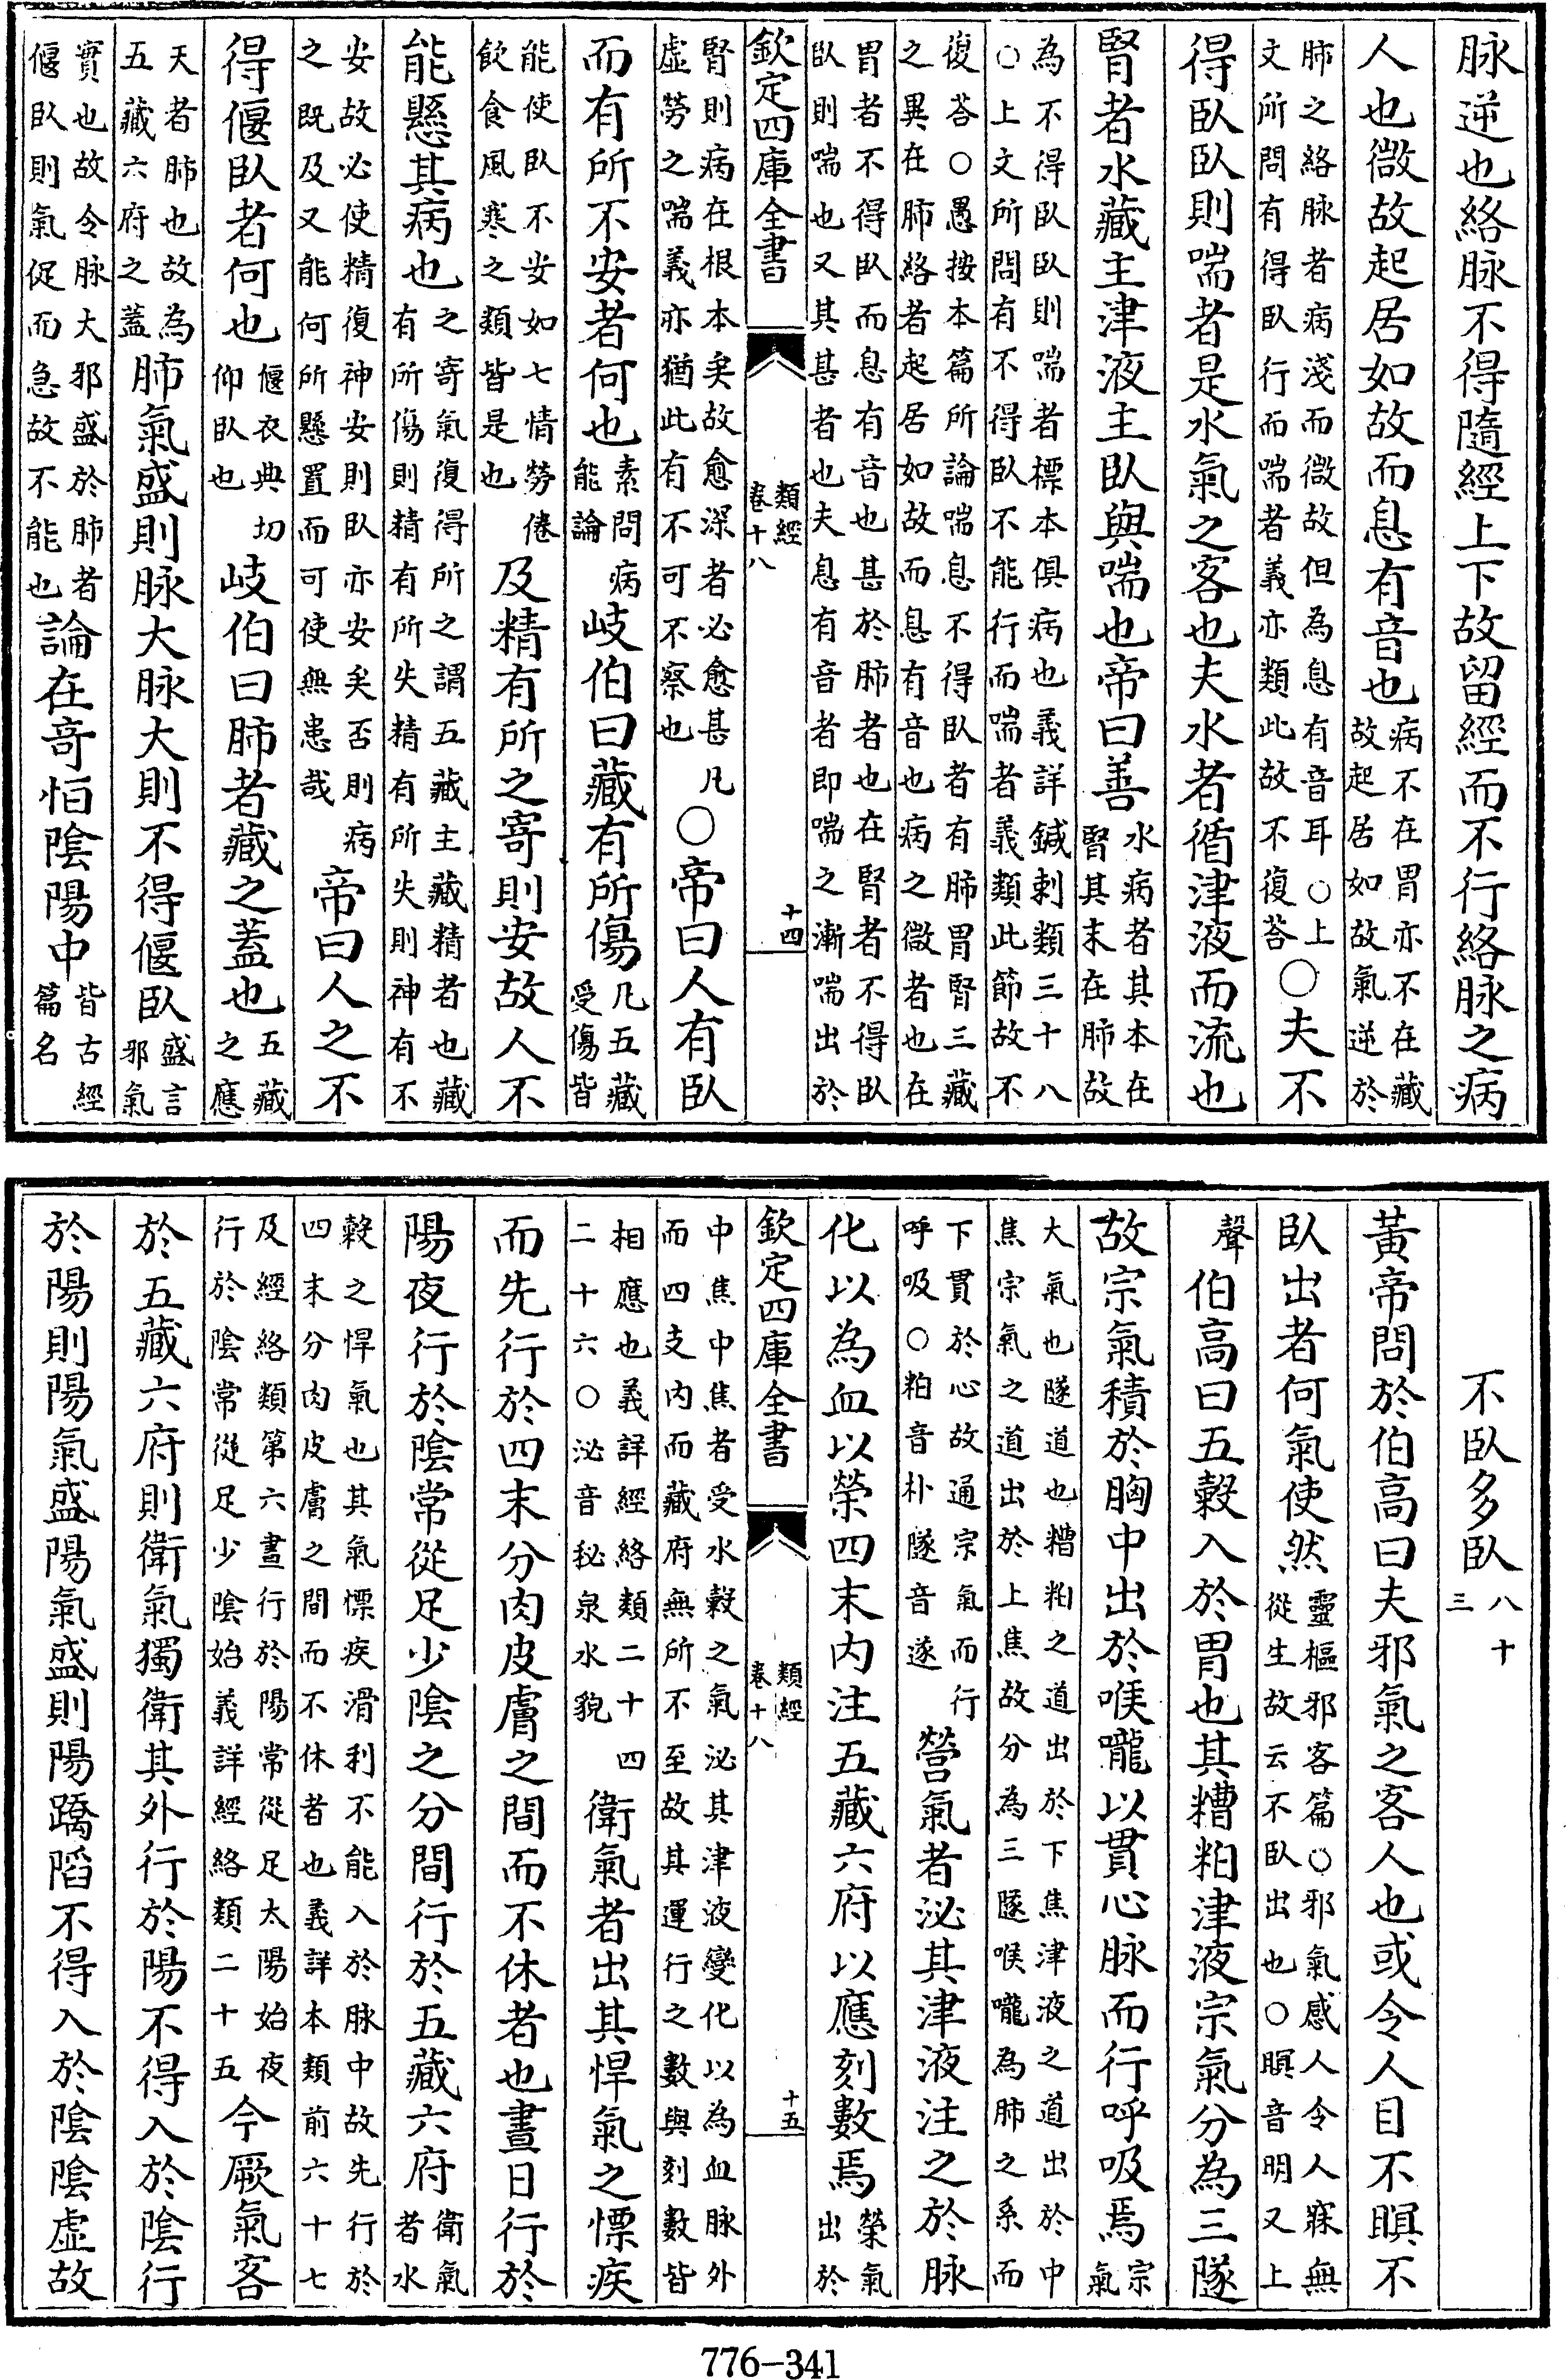 脉逆也絡脉不得隨經上下故留經而不行絡脉之病
人也微故起居如故而息有音也
病不在胃亦不在藏
故起居如故氣逆於
肺之絡脉者病淺而微故但為息有音耳○上
文所問有得臥行而喘者義亦類此故不復荅
○夫不
得臥臥則喘者是水氣之客也夫水者循津液而流也
腎者水藏主津液主臥與喘也帝曰善
水病者其本在
腎其末在肺故
為不得臥臥則喘者標本俱病也義詳鍼刺類三十八
○上文所問有不得臥不能行而喘者義類此節故不
復荅○愚按本篇所論喘息不得臥者有肺胃腎三藏
之異在肺絡者起居如故而息有音也病之微者也在
胃者不得臥而息有音也甚於肺者也在腎者不得臥
臥則喘也又其甚者也夫息有音者即喘之漸喘出於
欽定四庫全書
類經
卷十八
十四
腎則病在根本矣故愈深者必愈甚凡
虛勞之喘義亦猶此有不可不察也
○帝曰人有臥
而有所不安者何也
素問病
能論
岐伯曰藏有所傷
凡五藏
受傷皆
能使臥不安如七情勞倦
飲食風寒之類皆是也
及精有所之寄則安故人不
能懸其病也
之寄氣復得所之謂五藏主藏精者也藏
有所傷則精有所失精有所失則神有不
安故必使精復神安則臥亦安矣否則病
之既及又能何所懸置而可使無患哉
帝曰人之不
得偃臥者何也
偃衣典切
仰臥也
岐伯曰肺者藏之蓋也
五藏
之應
天者肺也故為
五藏六府之蓋
肺氣盛則脉大脉大則不得偃臥
盛言
邪氣
實也故令脉大邪盛於肺者
偃臥則氣促而急故不能也
論在奇恒陰陽中
皆古經
篇名
不臥多臥
八十
三
黃帝問於伯高曰夫邪氣之客人也或令人目不瞑不
臥出者何氣使然
靈樞邪客篇○邪氣感人令人寐無
從生故云不臥出也○瞑音明又上
聲
伯高曰五穀入於胃也其糟粕津液宗氣分為三隧
故宗氣積於胸中出於喉嚨以貫心脉而行呼吸焉
宗
氣
大氣也隧道也糟粕之道出於下焦津液之道出於中
焦宗氣之道出於上焦故分為三隧喉嚨為肺之系而
下貫於心故通宗氣而行
呼吸○粕音朴隧音遂
營氣者泌其津液注之於脉
化以為血以榮四末內注五藏六府以應刻數焉
榮氣
出於
欽定四庫全書
類經
卷十八
十五
中焦中焦者受水穀之氣泌其津液變化以為血脉外
而四支內而藏府無所不至故其運行之數與刻數皆
相應也義詳經絡類二十四
二十六○泌音秘泉水貌
衛氣者出其悍氣之慓疾
而先行於四末分肉皮膚之間而不休者也晝日行於
陽夜行於陰常從足少陰之分間行於五藏六府
衛氣
者水
穀之悍氣也其氣慓疾滑利不能入於脉中故先行於
四末分肉皮膚之間而不休者也義詳本類前六十七
及經絡類第六晝行於陽常從足太陽始夜
行於陰常從足少陰始義詳經絡類二十五
今厥氣客
於五藏六府則衛氣獨衛其外行於陽不得入於陰行
於陽則陽氣盛陽氣盛則陽蹻陷不得入於陰陰虛故
776-341